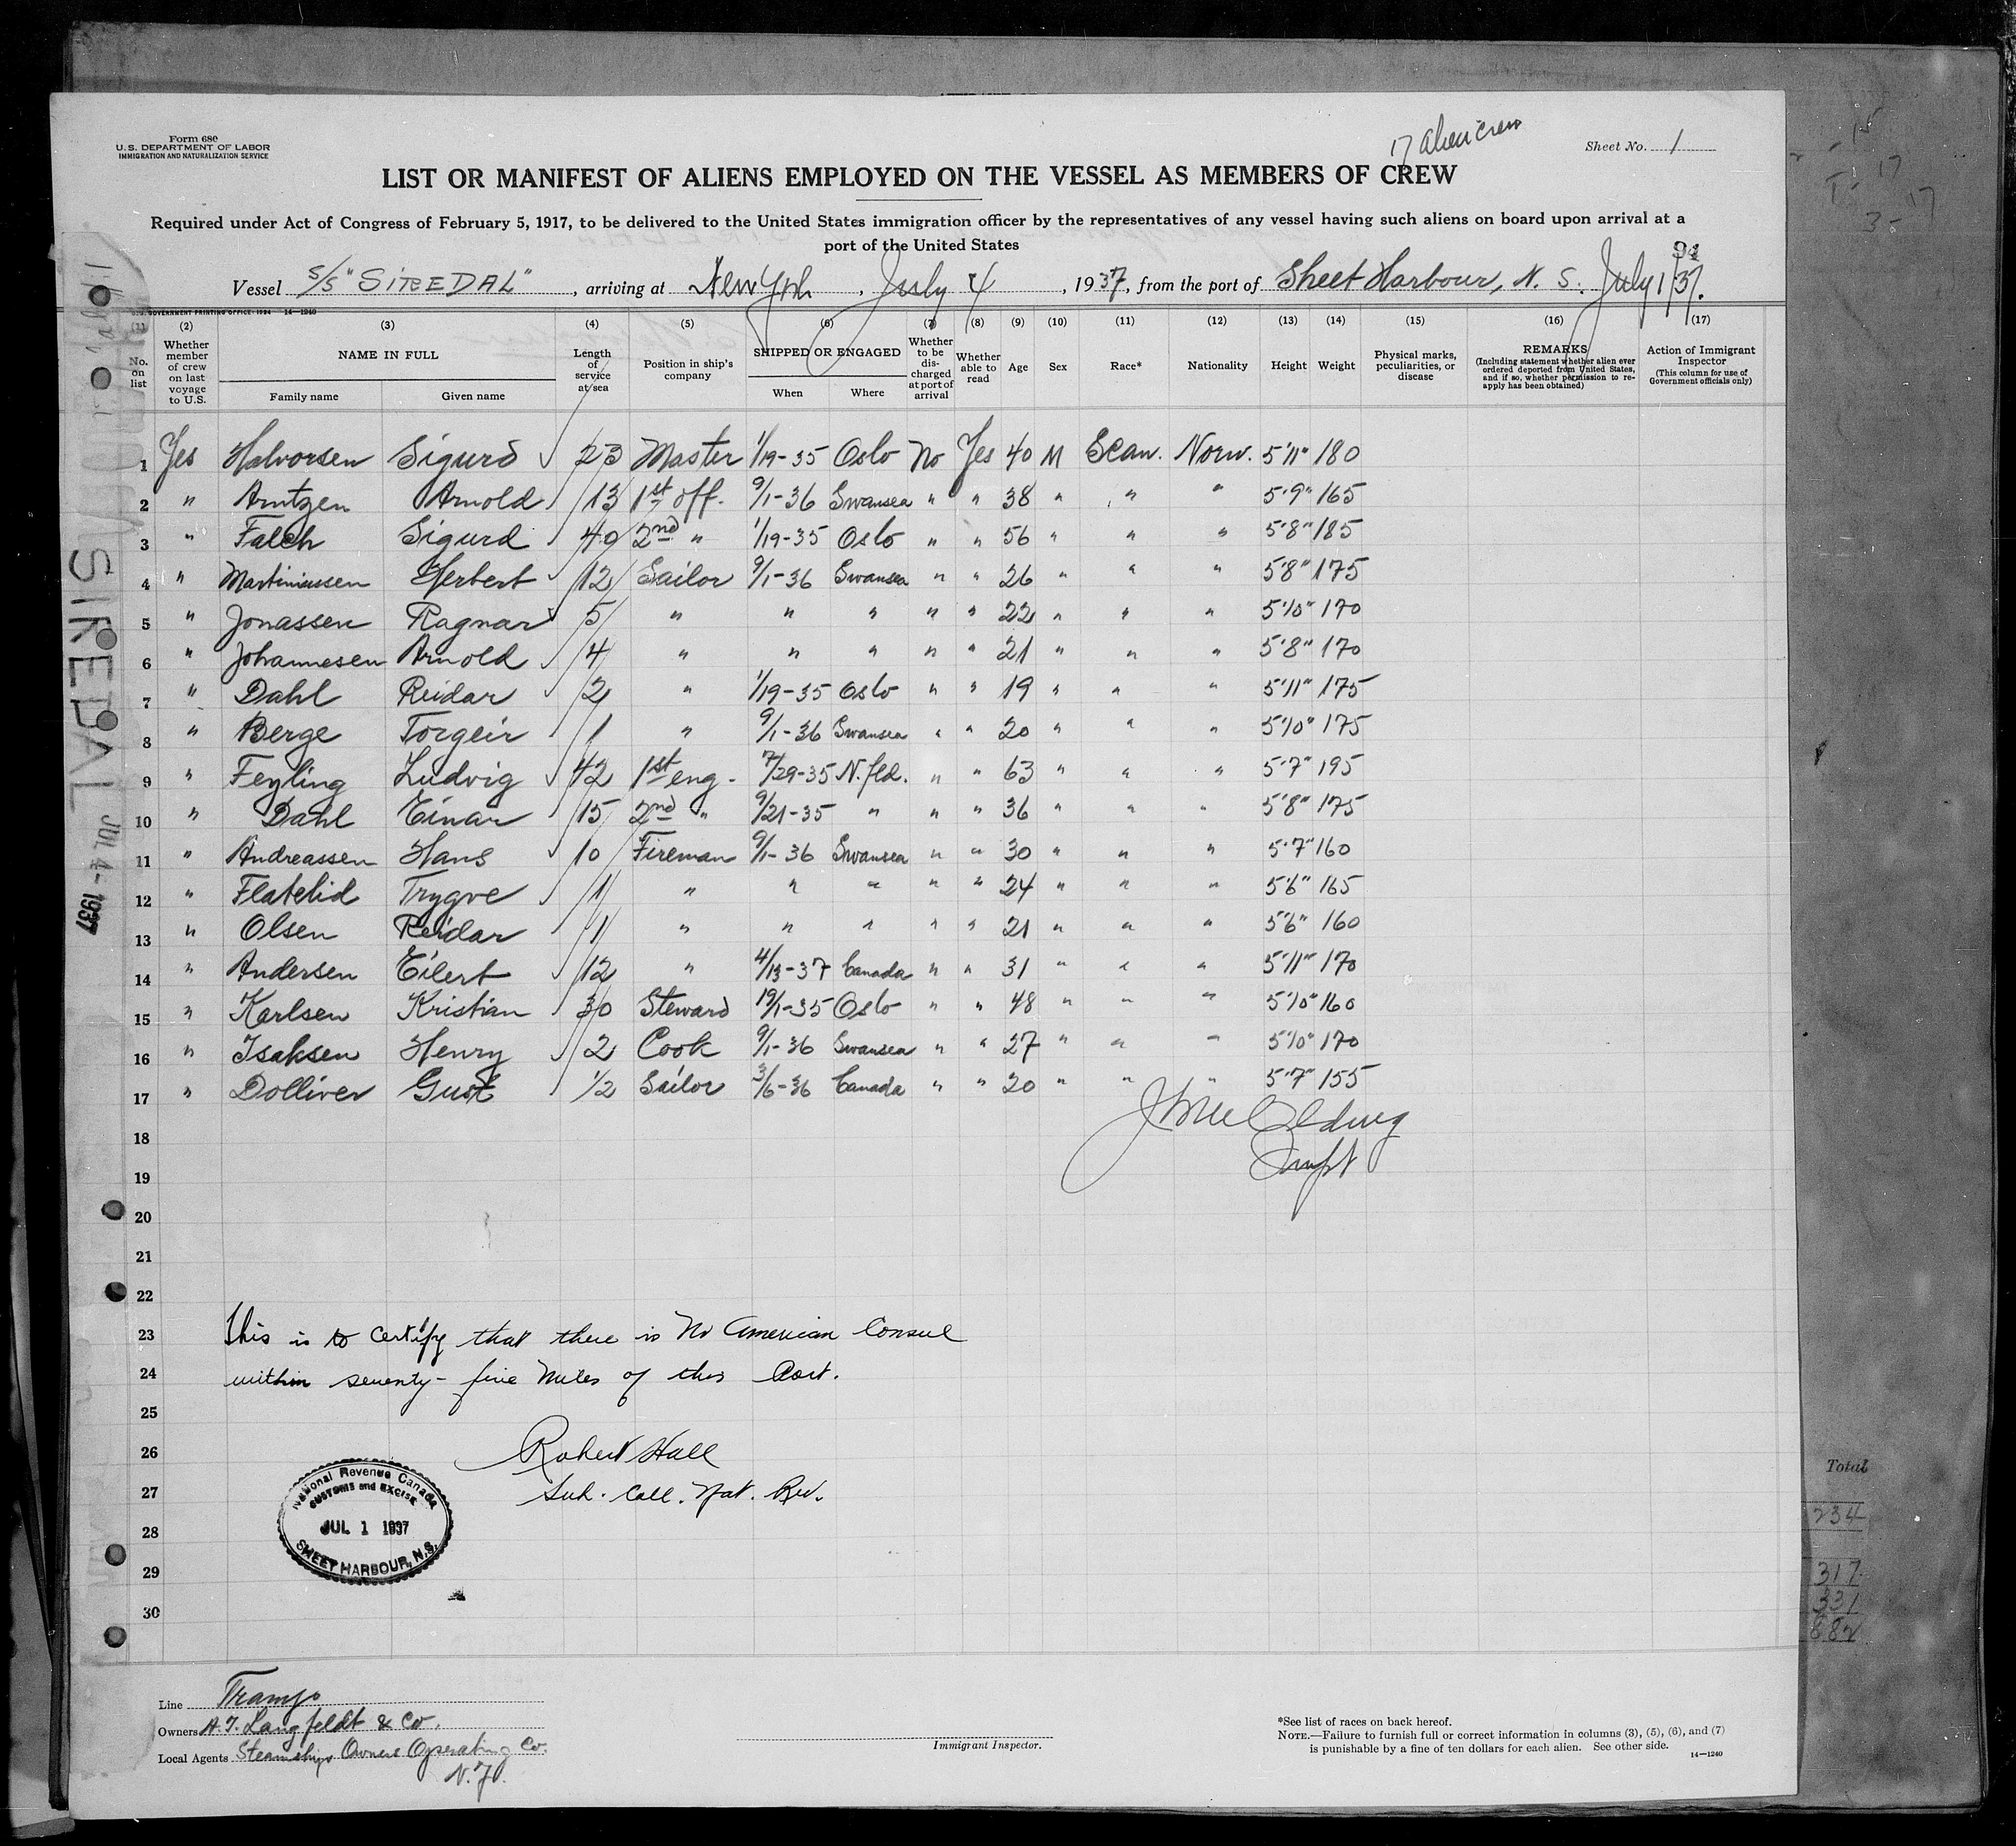 Form 680
U.S. DEPARTMENT OF LABOR
IMMIGRATION AND NATURALIZATION SERVICE
17 alien crew
Sheet No. 1
LIST OR MANIFEST OF ALIENS EMPLOYED ON THE VESSEL AS MEMBERS OF CREW
Required under Act of Congress of February 5, 1917, to be delivered to the United States immigration officer by the representatives of any vessel having such aliens on board upon arrival at a
port of the United States
Vessel S/S "SIREDAL", arriving at New York, July 4, 1937, from the port of Sheet Harbour, N. S. July 1/37.
U.S. GOVERNMENT PRINTING OFFICE: 1934 14—1240
(1) (2) (3) (4) (5) (6) (7) (8) (9) (10) (11) (12) (13) (14) (15) (16) (17)
No. on list Whether member of crew on last voyage to U.S. NAME IN FULL Family name Given name Length of service at sea Position in ship's company SHIPPED OR ENGAGED When Where Whether to be discharged at port of arrival Whether able to read Age Sex Race* Nationality Height Weight Physical marks, peculiarities, or disease REMARKS (Including statement whether alien ever ordered deported from United States, and if so, whether permission to reapply has been obtained) Action of Immigrant Inspector (This column for use of Government officials only)
1 Yes Halvorsen Sigurd 23 Master 1/19-35 Oslo No Yes 40 M Scan. Norw. 5'11" 180
2 " Arntzen Arnold 13 1st off. 9/1-36 Swansea " " 38 " " " 5'9" 165
3 " Falch Sigurd 40 2nd " 1/19-35 Oslo " " 56 " " " 5'8" 185
4 " Martiniussen Herbert 12 Sailor 9/1-36 Swansea " " 26 " " " 5'8" 175
5 " Jonassen Ragnar 5 " " " " " 22 " " " 5'10" 170
6 " Johannesen Arnold 4 " " " " " 21 " " " 5'8" 170
7 " Dahl Reidar 2 " 1/19-35 Oslo " " 19 " " " 5'11" 175
8 " Berge Torgeir 1 " 9/1-36 Swansea " " 20 " " " 5'10" 175
9 " Feyling Ludvig 42 1st eng. 7/29-35 N.fld. " " 63 " " " 5'7" 195
10 " Dahl Einar 15 2nd " 9/21-35 " " " 36 " " " 5'8" 175
11 " Andreassen Hans 10 Fireman 9/1-36 Swansea " " 30 " " " 5'7" 160
12 " Flatelid Trygve 1 " " " " " 24 " " " 5'6" 165
13 " Olsen Reidar 1 " " " " " 21 " " " 5'6" 160
14 " Andersen Eilert 12 " 4/13-37 Canada " " 31 " " " 5'11" 170
15 " Karlsen Kristian 30 Steward 19/1-35 Oslo " " 48 " " " 5'10" 160
16 " Isaksen Henry 2 Cook 9/1-36 Swansea " " 27 " " " 5'10" 170
17 " Dolliver Gust 1/2 Sailor 3/6-36 Canada " " 20 " " " 5'7" 155
18
19
20
21
22
23 This is to certify that there is no American Consul
24 within seventy-five miles of this Port.
25
26 Robert Hall
27 Sub. Coll. Nat. Rev.
28
29
30
National Revenue Canada
CUSTOMS and EXCISE
JUL 1 1937
SHEET HARBOUR, N.S.
SIREDAL JUL 4 - 1937
Line Tramp
Owners A. T. Langfeldt & Co.
Local Agents Steamships Owners Operating Co.
N.Y.
Immigrant Inspector.
*See list of races on back hereof.
NOTE.—Failure to furnish full or correct information in columns (3), (5), (6), and (7)
is punishable by a fine of ten dollars for each alien. See other side.
14—1240
Total
234
317
331
882